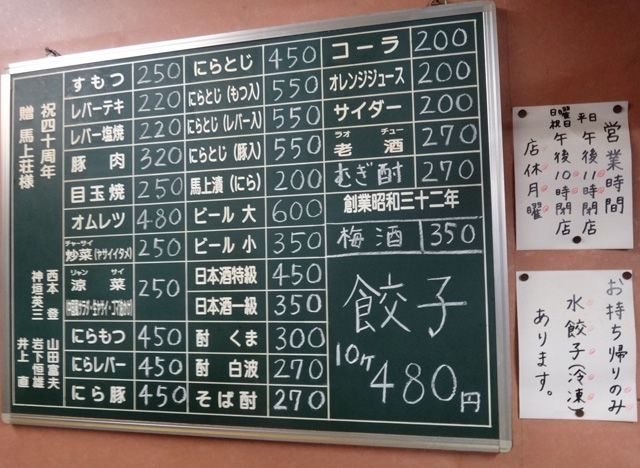 祝四十周年
贈 馬上荘様
西本 登
神垣英三
山田富夫
岩下恒雄
井上 直
すもつ 250
レバーテキ 220
レバー塩焼 220
豚肉 320
目玉焼 250
オムレツ 480
チャーサイ
炒菜(ヤサイイタメ) 250
リャン サイ
涼菜 250
にらもつ 450
にらレバー 450
にら豚 450
にらとじ 450
にらとじ(もつ入) 550
にらとじ(レバー入) 550
にらとじ(豚入) 550
馬上漬(にら) 200
ビール 大 600
ビール 小 350
日本酒特級 450
日本酒一級 350
酎 くま 300
酎 白波 270
そば酎 270
コーラ 200
オレンジジュース 200
サイダー 200
ラオ チュー
老酒 270
むぎ酎 270
創業昭和三十二年
梅酒 350
餃子
10ケ 480円
営業時間
平日 午後11時閉店
日曜日 祝 午後10時閉店
店休月曜
お持ち帰りのみ
水餃子(冷凍)
あります。